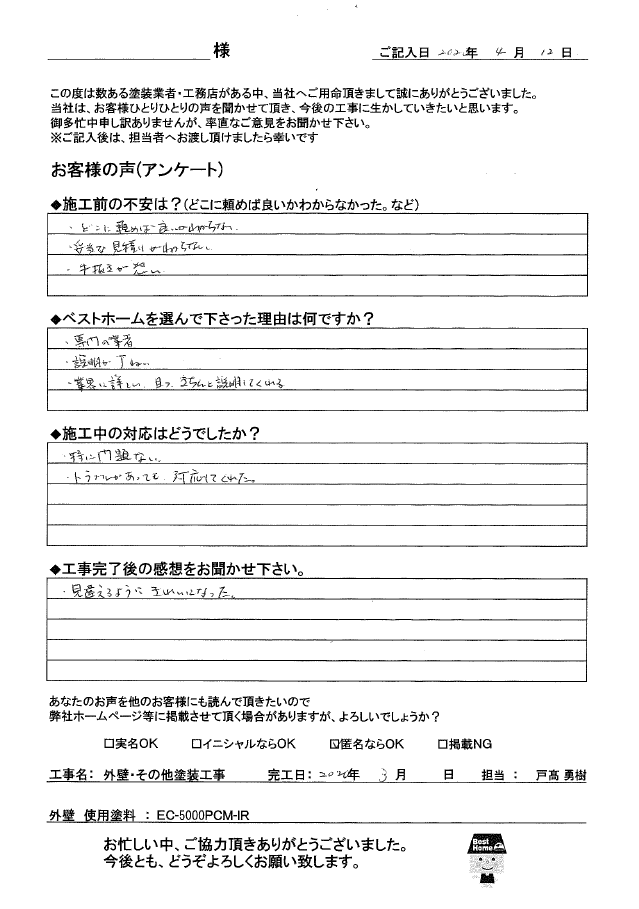 様
ご記入日 2026年 4月 12日
この度は数ある塗装業者・工務店がある中、当社へご用命頂きまして誠にありがとうございました。
当社は、お客様ひとりひとりの声を聞かせて頂き、今後の工事に生かしていきたいと思います。
御多忙中申し訳ありませんが、率直なご意見をお聞かせ下さい。
※ご記入後は、担当者へお渡し頂けましたら幸いです
お客様の声(アンケート)
◆施工前の不安は？(どこに頼めば良いかわからなかった。など)
・どこに頼めば良いかわからない
・妥当な見積りがわからない
・手抜きが恐い
◆ベストホームを選んで下さった理由は何ですか？
・専門の業者
・説明が丁ねい
・業界に詳しい、且つ、きちんと説明してくれる
◆施工中の対応はどうでしたか？
・特に問題ない。
・トラブルがあっても、対応してくれた。
◆工事完了後の感想をお聞かせ下さい。
・見違えるようにきれいになった。
あなたのお声を他のお客様にも読んで頂きたいので
弊社ホームページ等に掲載させて頂く場合がありますが、よろしいでしょうか？
□実名OK □イニシャルならOK ☑匿名ならOK □掲載NG
工事名： 外壁・その他塗装工事 完工日：2026年 3月 日 担当： 戸髙 勇樹
外壁 使用塗料 ： EC-5000PCM-IR
お忙しい中、ご協力頂きありがとうございました。
今後とも、どうぞよろしくお願い致します。
Best
Home